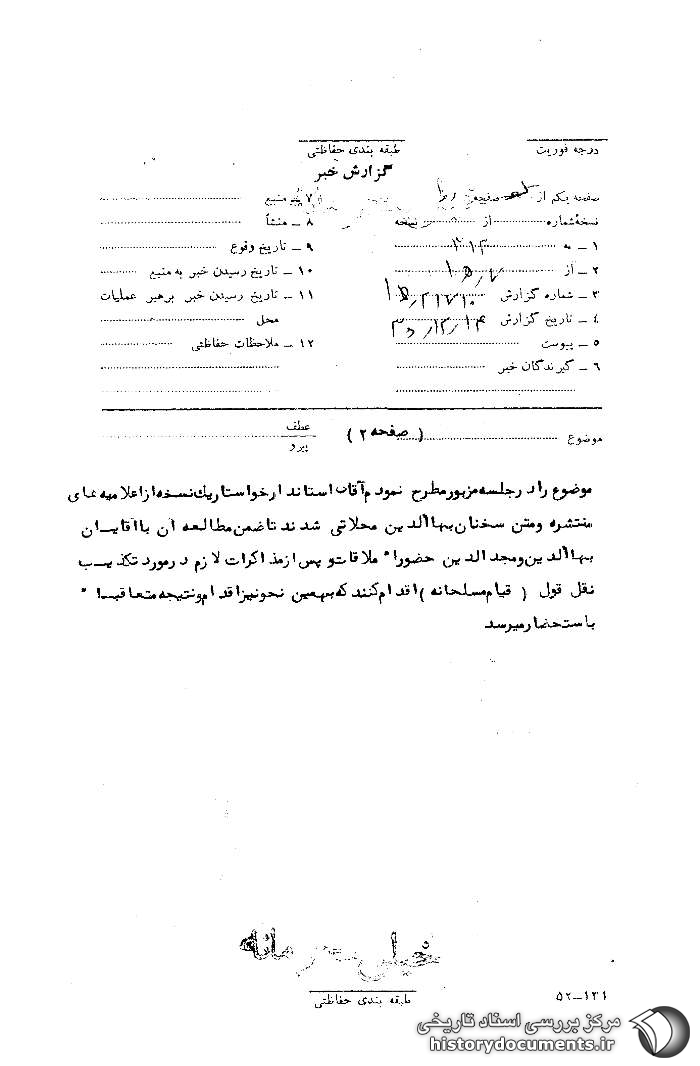 درجه فوریت
طبقه بندی حفاظتی
گزارش خبر
صفحه یکم از صفحه
نسخهٔ شماره از نسخه
۱ ــ به ۳۱۲
۲ ــ از ۱۵ر۷
۳ ــ شماره گزارش
۴ ــ تاریخ گزارش
۵ ــ پیوست
۶ ــ گیرندگان خبر
۷ ــ منبع
۸ ــ منشأ
۹ ــ تاریخ وقوع
۱۰ ــ تاریخ رسیدن خبر به منبع
۱۱ ــ تاریخ رسیدن خبر برهبر عملیات
محل
۱۲ ــ ملاحظات حفاظتی
موضوع (صفحه ۲)
عطف
پیرو
موضوع را در جلسه مزبور مطرح نمودم آقای استاندار خواستار یک نسخه از اعلامیه های
منتشره و متن سخنان بهاالدین محلاتی شدند تا ضمن مطالعه آن با آقایان
بهاالدین و مجدالدین حضوراً ملاقات و پس از مذاکرات لازم در مورد تکذیب
نقل قول (قیام مسلحانه) اقدام کنند که بهمین نحو نیز اقدام و نتیجه متعاقباً
باستحضار میرسد
خیلی محرمانه
طبقه بندی حفاظتی
۵۲ــ۱۲۱
مرکز بررسی اسناد تاریخی
historydocuments.ir